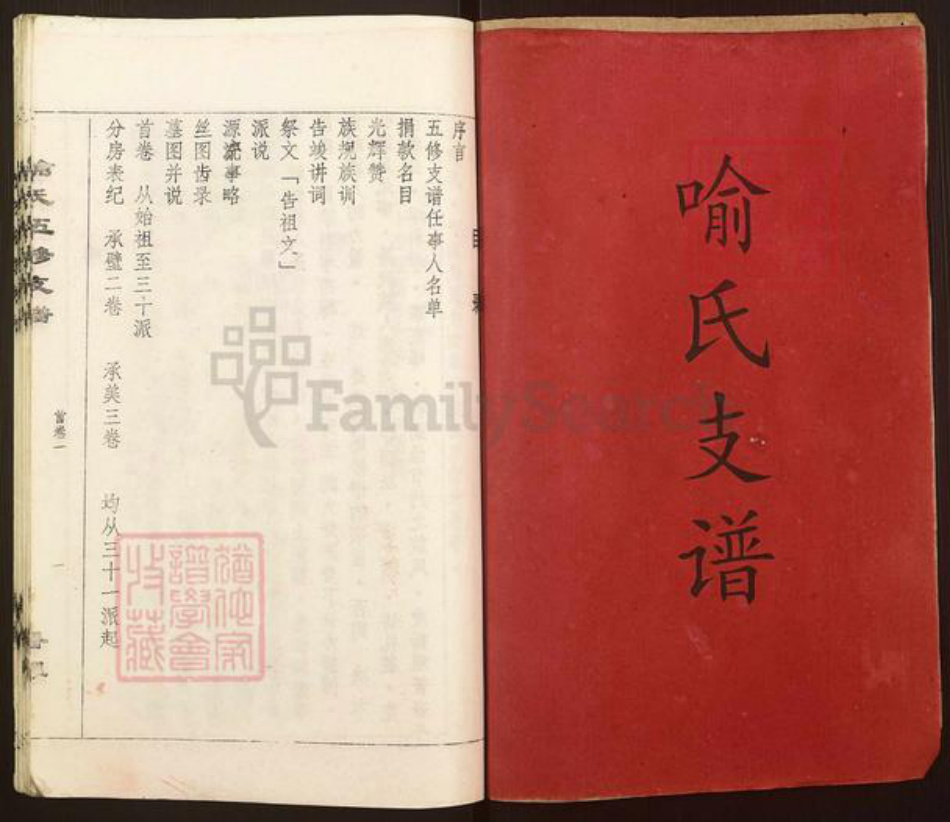 喻氏支谱
目录
序言
五修支谱任事人名单
捐款名目
光辉赞
族规族训
告竣讲词
祭文「告祖文」
派说
源流事略
丝图齿录
墓图并说
首卷 从始祖至三十派
分房表纪 承璧二卷 承美三卷 均从三十一派起
喻氏五修支谱
首卷一
一
猶他家
譜學會
收藏
FamilySearch